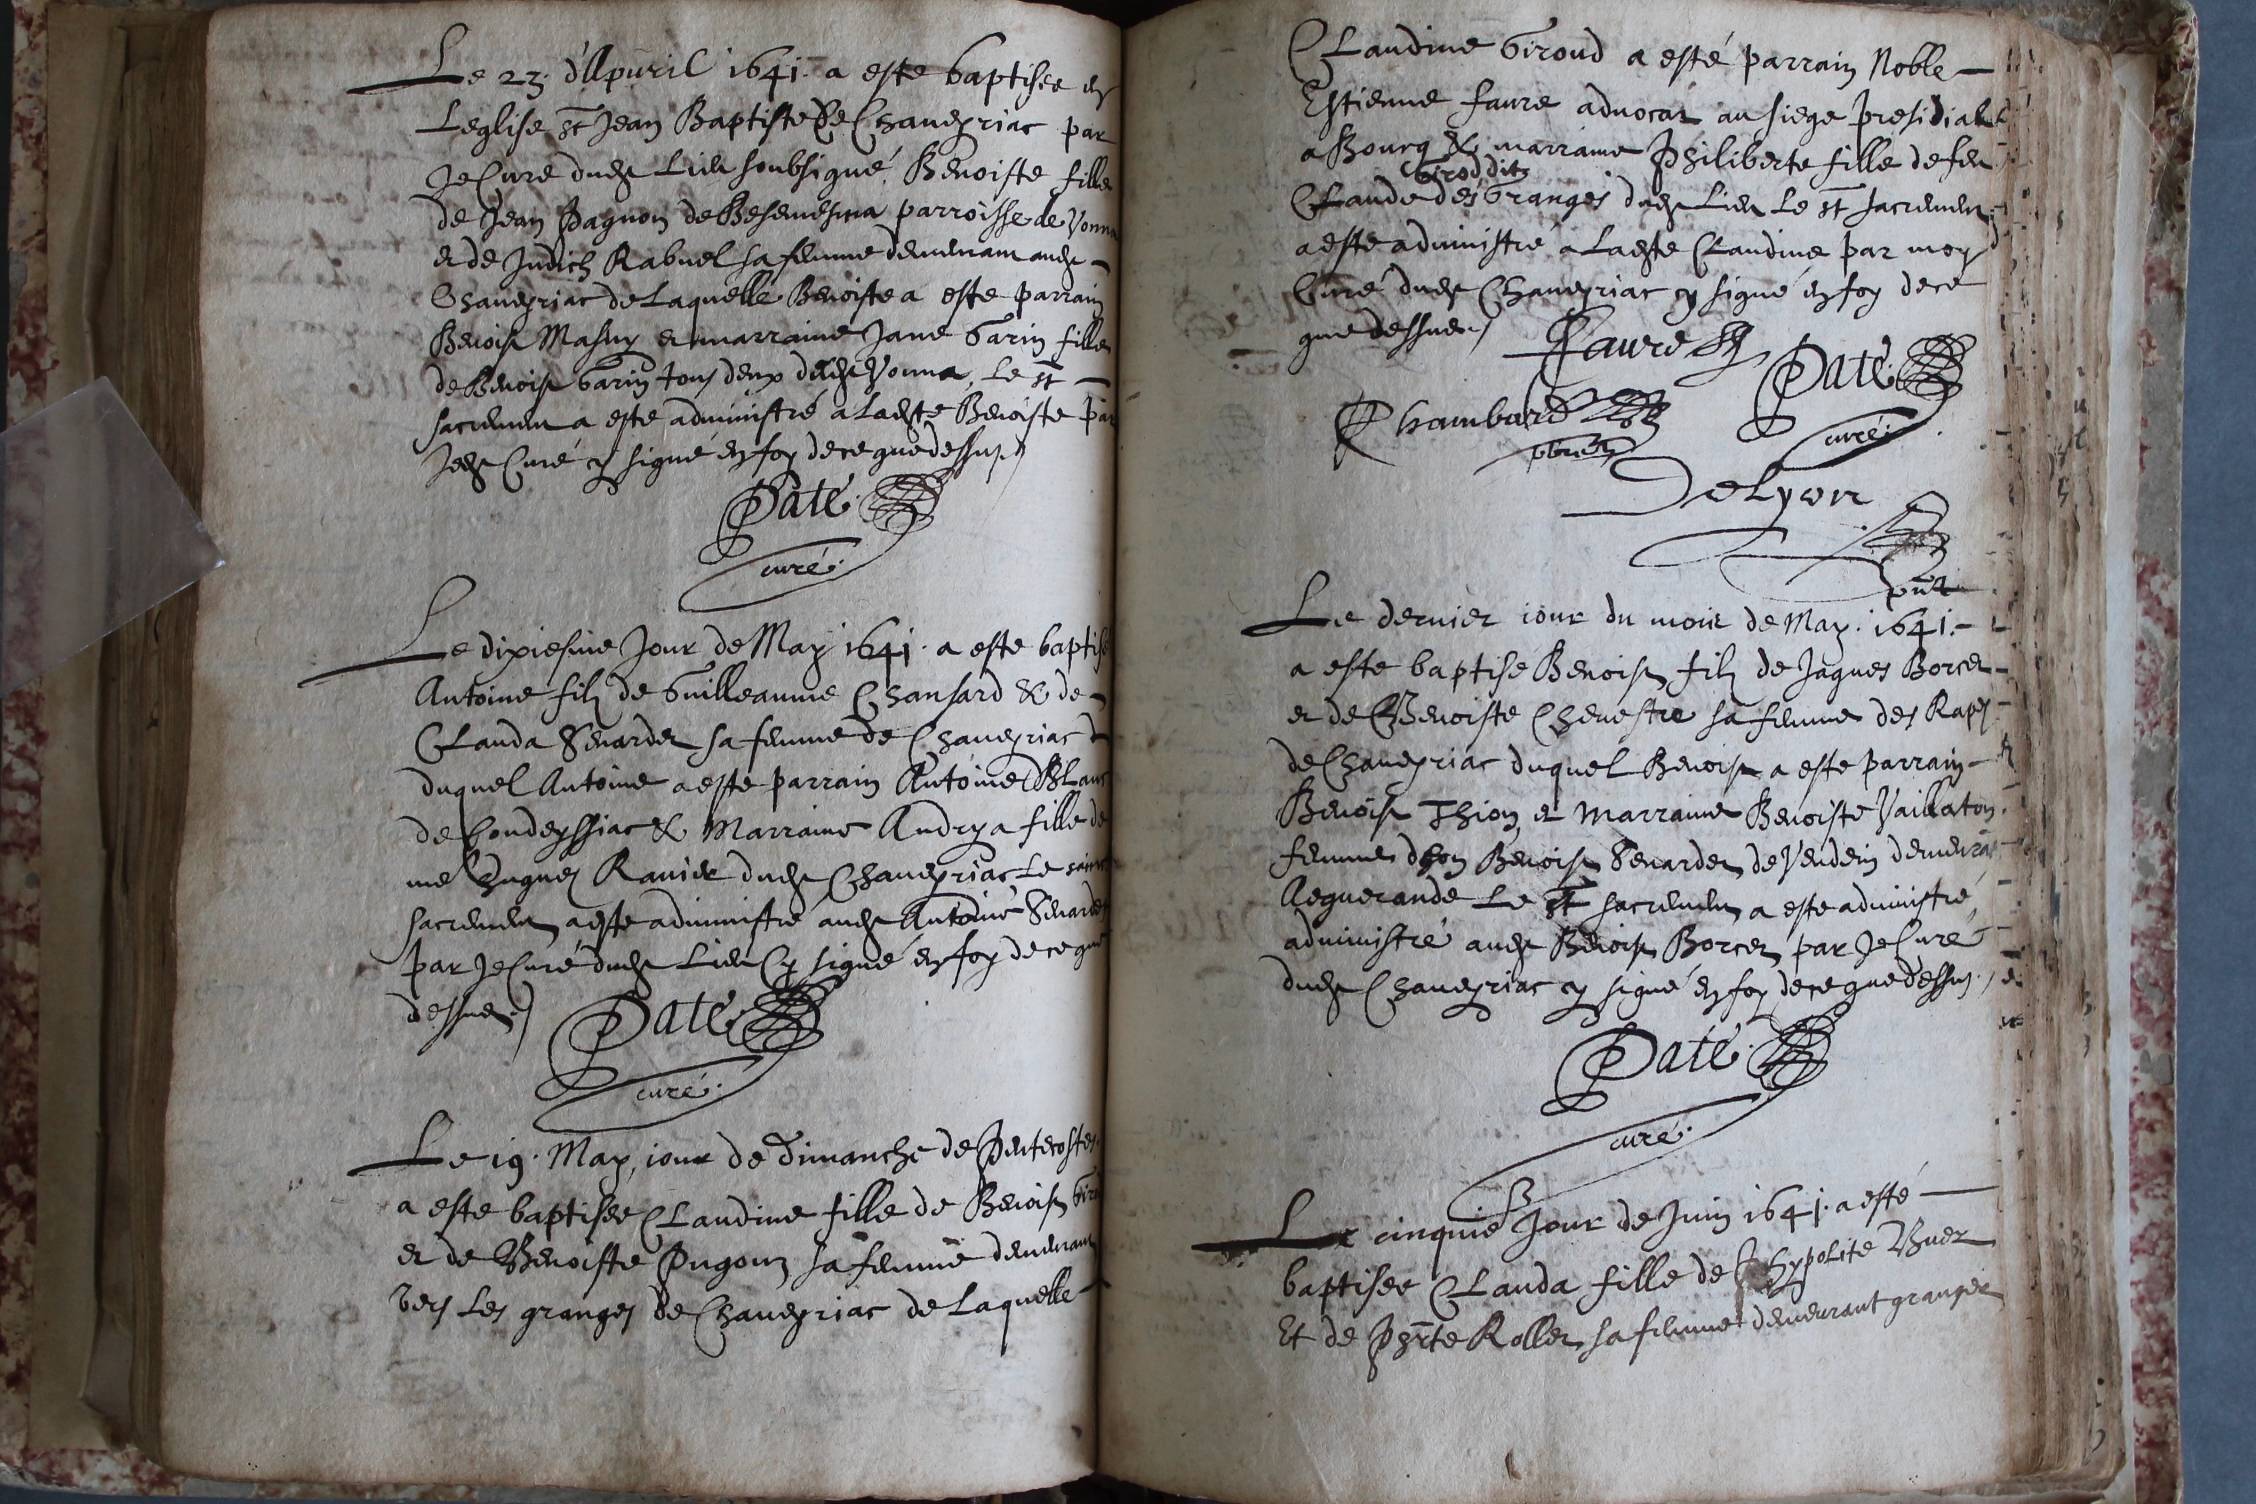 Le 23. d'Apuril 1641. a este baptisee en
Leglise st Jean Baptiste de Chaueyriac par
Je Cure dudt Lieu soubsigné, Benoiste fille
de Jean Pagnon de parroisse de Vonna
et de Judich Rabuel sa femme demeurant audt
Chaueyriac de Laquelle Benoiste a este parrain
Benoist Masuy et marraine Jane Garin fille
de Benoist Garin tous deux dudt Vonna, Le st
sacrement a este administré a Ladte Benoiste par
Jedt Curé cy signé en foy de ce que dessus
Paté
curé
Le dixiesme Jour de May 1641. a este baptisé
Antoine filz de Guilleaume Chansard & de
Clauda Senardet sa femme de Chaueyriac
duquel Antoine a este parrain Antoine Blanc
de Condeyssiac & Marraine Andrya fille de
me Hugues Rauier dudt Chaueyriac Le sainct
sacrement a este administré audt Antoine Senardet
par Je Curé dudt Lieu Cy signé en foy de ce que
dessus
Paté
curé
Le 19. May, iour de dimanche de Pentecostes
a este baptisee Claudine fille de Benoist
et de Benoiste Pugoux sa femme demeurant
Vers Les granges de Chaueyriac de Laquelle
Claudine Giroud a esté parrain Noble
Estienne Faure aduocat au siege presidial
a Bourg & marraine Philiberte fille de feu
Girod ditz
Claude des Granges dudt Lieu Le st sacrement
a este administré a Ladte Claudine par moy
Curé dudt Chaueyriac cy signé en foy de ce
que dessus
Faure
Paté
Chambard
curé
pbre
DeLyon
pnt
Le dernier iour du mois de May. 1641.
a este baptisé Benoist filz de Jaques Borcet
et de Benoiste Cheuestre sa femme des Rapes
de Chaueyriac duquel Benoist a este parrain
Benoist Thion, et Marraine Benoiste Vaillaton
femme d'hon Benoist Senardet de Vendein demeurant
Aeguerande Le st sacrement a este administré,
administré audt Benoist Borcet par Je Curé
dudt Chaueyriac cy signé en foy de ce que dessus
Paté
curé
Le cinquie Jour de Juin 1641. a esté
baptisee Clauda fille de hypolite Buer
Et de Phrte Rollet sa femme demeurant granger